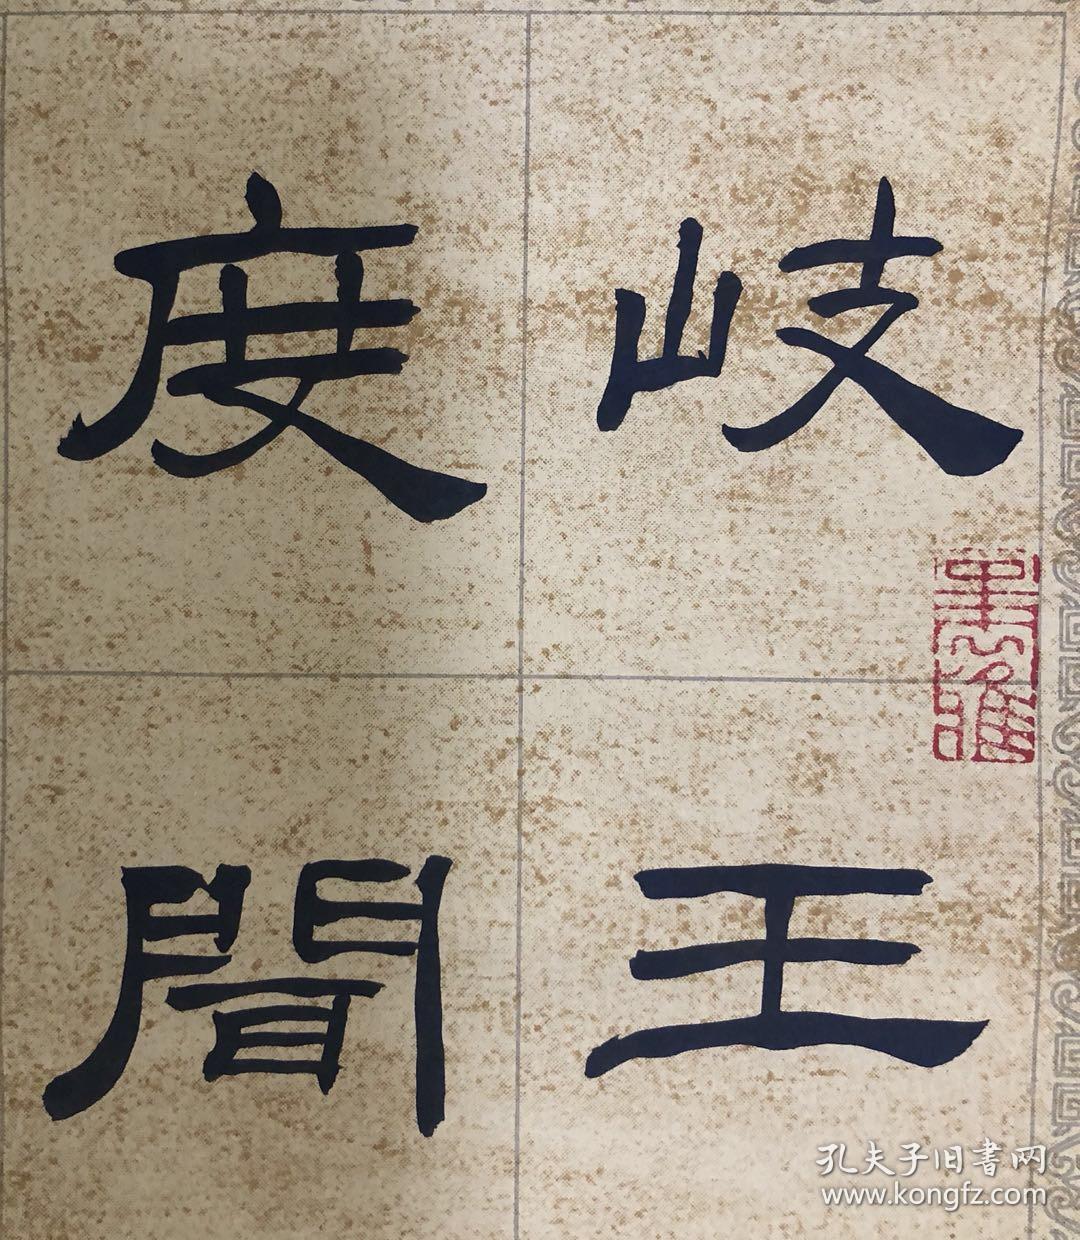 岐王
度聞
孔夫子旧書网
www.kongfz.com